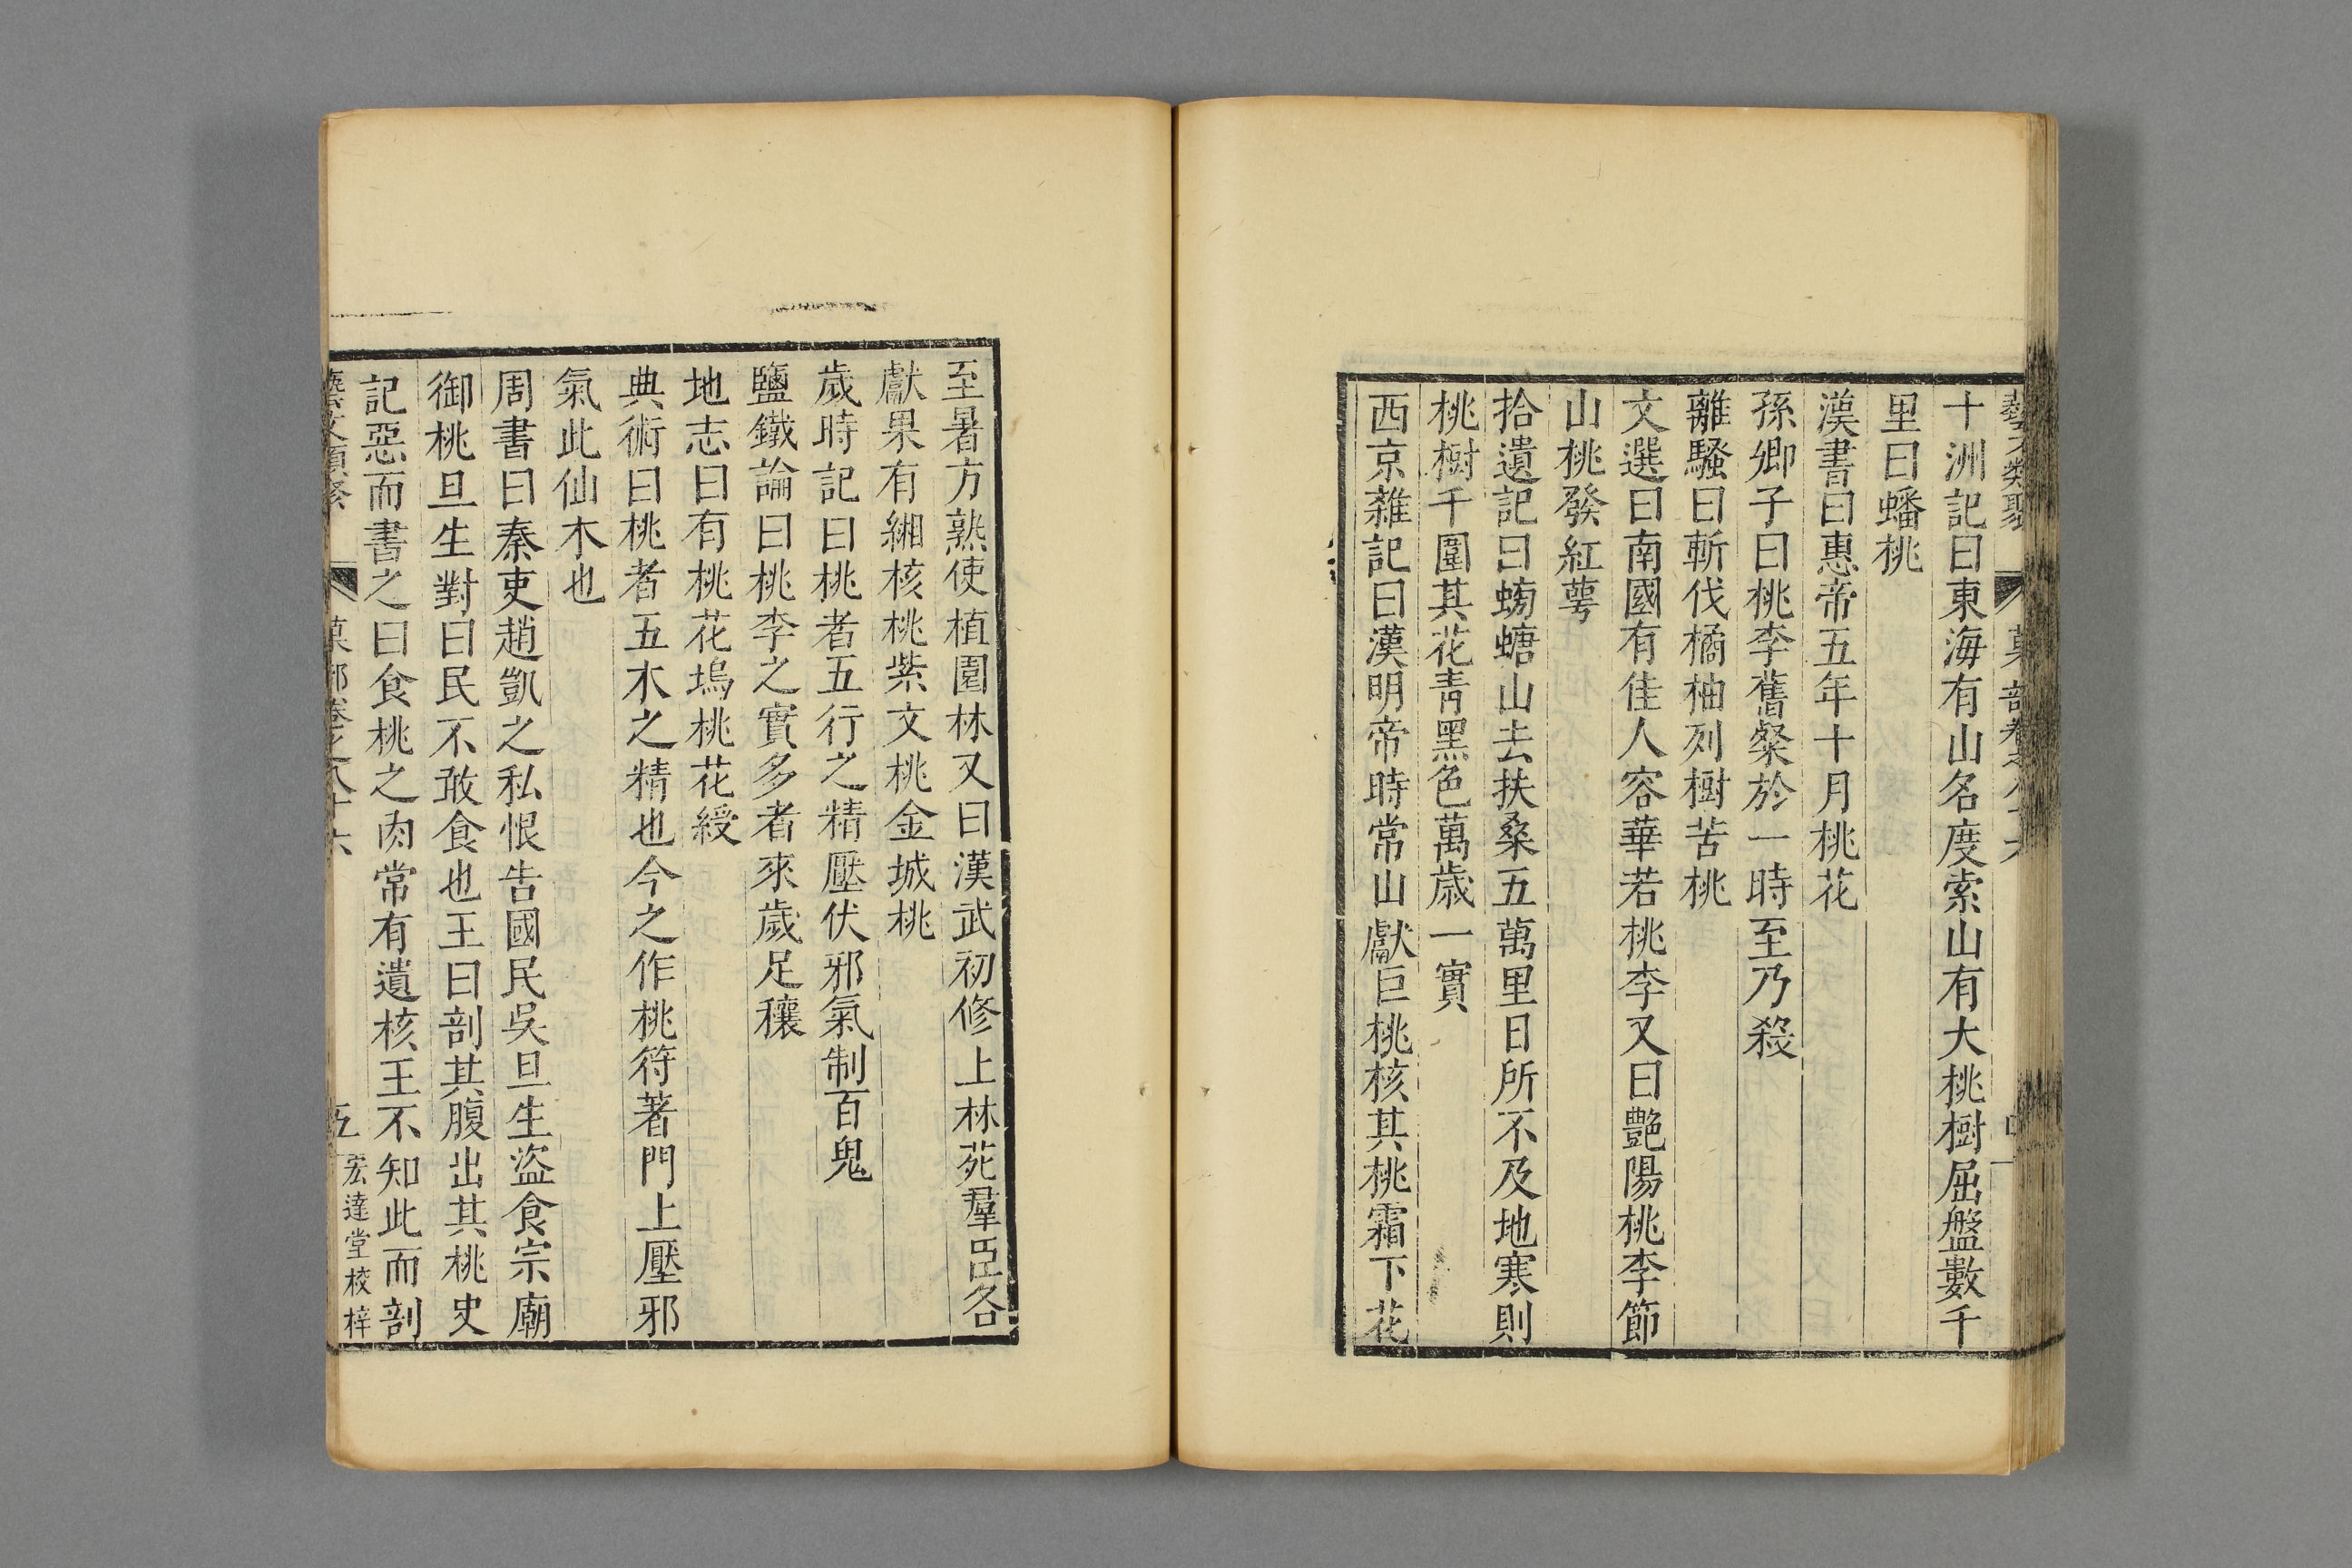 十洲記曰東海有山名度索山有大桃樹屈盤數千
里曰蟠桃
漢書曰惠帝五年十月桃花
孫卿子曰桃李舊粲於一時至乃殺
離騷曰斬伐橘柚列樹苦桃
文選曰南國有佳人容華若桃李又曰艷陽桃李節
山桃發紅萼
拾遺記曰蝺螗山去扶桑五萬里日所不及地寒則
桃樹千圍其花青黑色萬歲一實
西京雜記曰漢明帝時常山獻巨桃核其桃霜下花
至暑方熟使植園林又曰漢武初修上林苑羣臣各
獻果有緗核桃紫文桃金城桃
歲時記曰桃者五行之精壓伏邪氣制百鬼
鹽鐵論曰桃李之實多者來歲足穰
地志曰有桃花塢桃花綬
典術曰桃者五木之精也今之作桃符著門上壓邪
氣此仙木也
周書曰秦吏趙凱之私恨告國民吳旦生盜食宗廟
御桃旦生對曰民不敢食也王曰剖其腹出其桃史
記惡而書之曰食桃之肉常有遺核王不知此而剖
五
宏達堂校梓